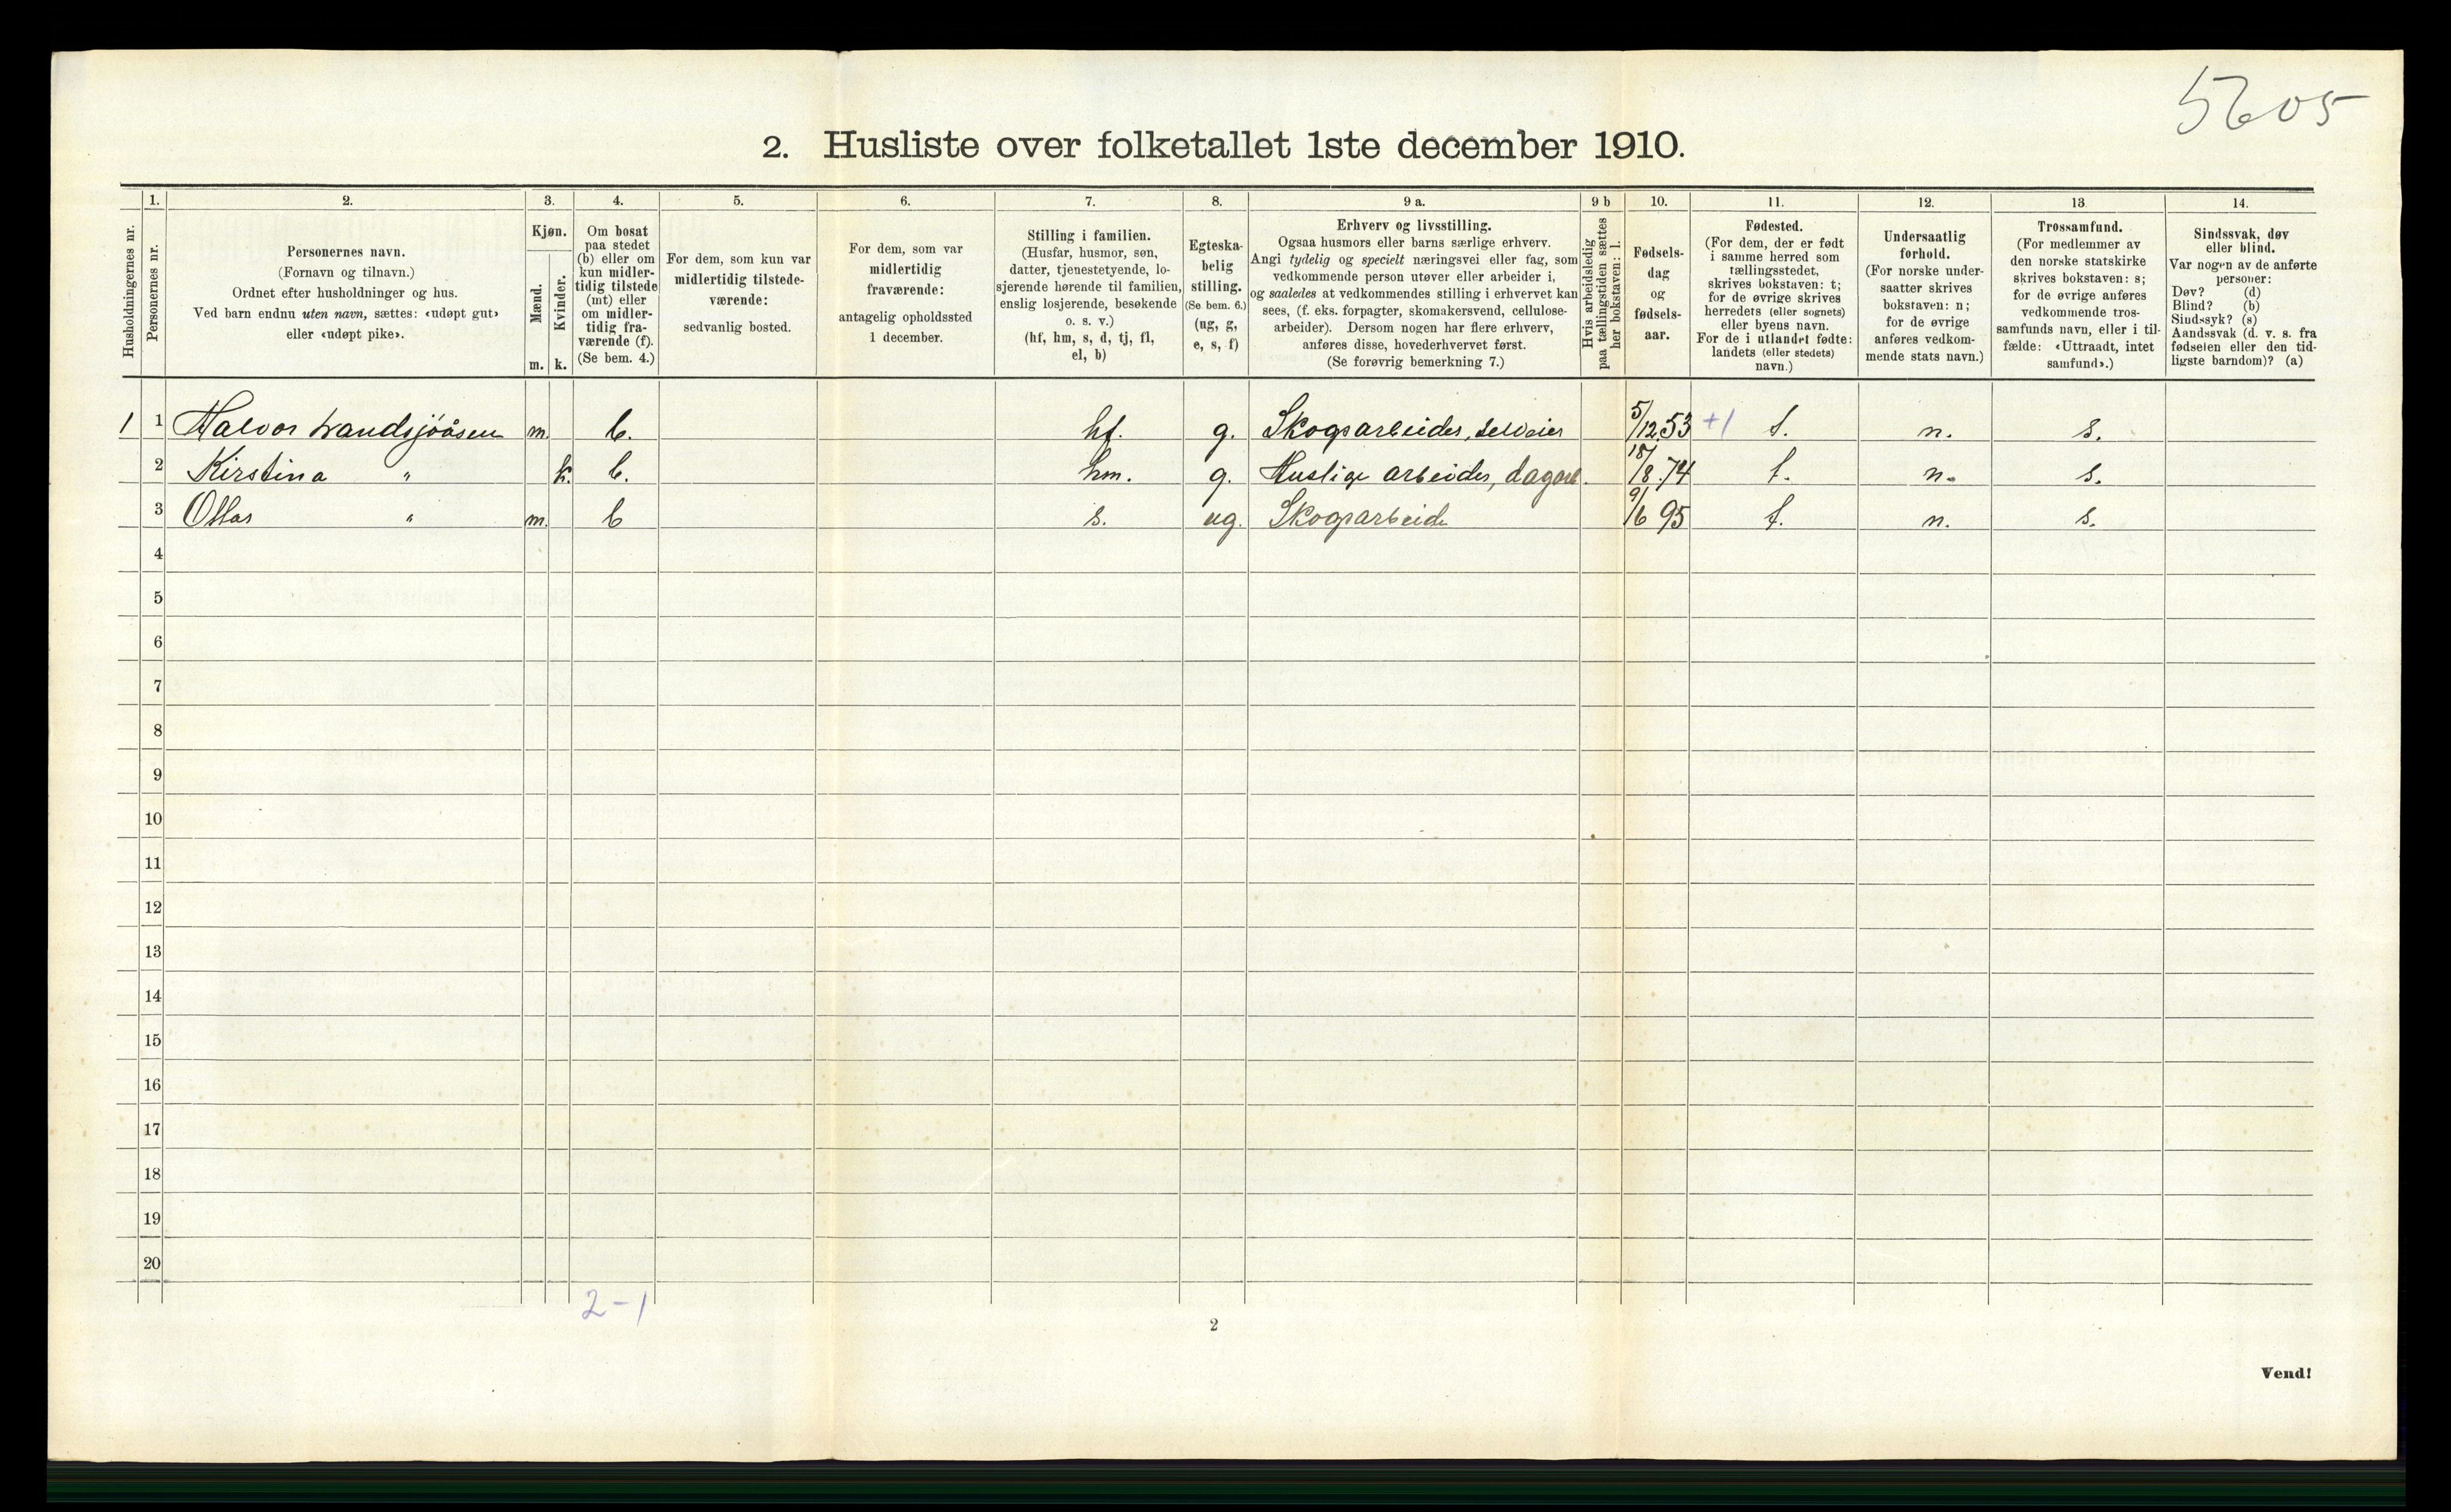 5605
2. Husliste over folketallet 1ste december 1910.
Husholdningernes nr.
1.
Personernes nr.
2.
Personernes navn.
(Fornavn og tilnavn.)
Ordnet efter husholdninger og hus.
Ved barn endnu uten navn, sættes: «udøpt gut»
eller «udøpt pike».
3.
Kjøn.
Mænd.
Kvinder.
m. k.
4.
Om bosat
paa stedet
(b) eller om
kun midler-
tidig tilstede
(mt) eller
om midler-
tidig fra-
værende (f).
(Se bem. 4.)
5.
For dem, som kun var
midlertidig tilstede-
værende:
sedvanlig bosted.
6.
For dem, som var
midlertidig
fraværende:
antagelig opholdssted
1 december.
7.
Stilling i familien.
(Husfar, husmor, søn,
datter, tjenestetyende, lo-
sjerende hørende til familien,
enslig losjerende, besøkende
o. s. v.)
(hf, hm, s, d, tj, fl,
el, b)
8.
Egteska-
belig
stilling.
(Se bem. 6.)
(ug, g,
e, s, f)
9 a.
Erhverv og livsstilling.
Ogsaa husmors eller barns særlige erhverv.
Angi tydelig og specielt næringsvei eller fag, som
vedkommende person utøver eller arbeider i,
og saaledes at vedkommendes stilling i erhvervet kan
sees, (f. eks. forpagter, skomakersvend, cellulose-
arbeider). Dersom nogen har flere erhverv,
anføres disse, hovederhvervet først.
(Se forøvrig bemerkning 7.)
9 b
Hvis arbeidsledig
paa tællingstiden sættes
her bokstaven: l.
10.
Fødsels-
dag
og
fødsels-
aar.
11.
Fødested.
(For dem, der er født
i samme herred som
tællingsstedet,
skrives bokstaven: t;
for de øvrige skrives
herredets (eller sognets)
eller byens navn.
For de i utlandet fødte:
landets (eller stedets)
navn.)
12.
Undersaatlig
forhold.
(For norske under-
saatter skrives
bokstaven: n;
for de øvrige
anføres vedkom-
mende stats navn.)
13
Trossamfund.
(For medlemmer av
den norske statskirke
skrives bokstaven: s;
for de øvrige anføres
vedkommende tros-
samfunds navn, eller i til-
fælde: «Uttraadt, intet
samfund».)
14.
Sindssvak, døv
eller blind.
Var nogen av de anførte
personer:
Døv? (d)
Blind? (b)
Sindssyk? (s)
Aandssvak (d. v. s. fra
fødselen eller den tid-
ligste barndom)? (a)
1 1 Halvor Landsjöåsen m. b. hf. g. Skogsarbeider, selveier 5/12 53 +1 t. n. s.
2 Kirstina " k. b. hm. g. Huslige arbeider, dagarb. 18/8 74 t. n. s.
3 " m. b s. ug. Skogsarbeide 9/6 95 t. n. s.
4
5
6
7
8
9
10
11
12
13
14
15
16
17
18
19
20
2-1
2
Vend!